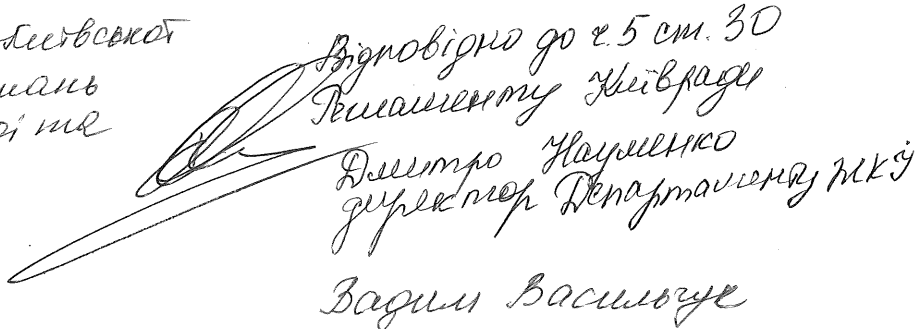 Київської
мань
ві та
Відповідно до ч.5 ст. 30
Регламенту Київради
Дмитро Науменко
директор Департаменту ЖКІ
Вадим Васильчук